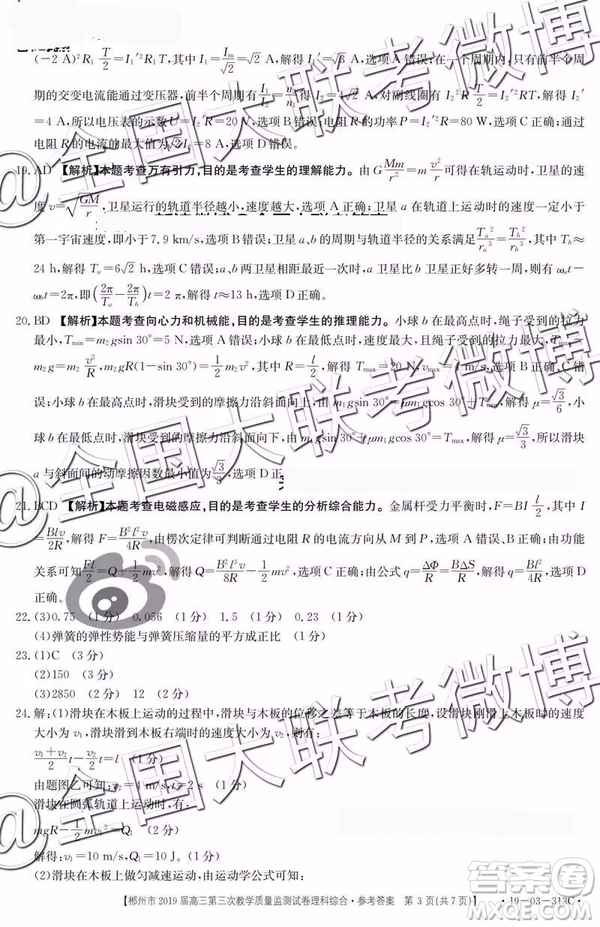 (-2 A)²R₁ T/2 = I₁′²R₁T, I₁ = Iₘ/√2 = √2 A, 解得 I₁′ = √3 A, 选项 A 错误; 在一个周期内, 只有前半个周
期的交变电流能通过变压器, 前半个周期有 I₂ 对副线圈有 I₂²R T/2 = I₂′²RT, 解得 I₂′
=4 A, 所以电压表的示数 U=I₂′R=20 V, 选项 B 错误; 电阻 R 的功率 P=I₂′²R=80 W, 选项 C 正确; 通过
电阻 R 的电流的最大值为 √2I₂=8 A, 选项 D 错误。
19. AD 【解析】本题考查万有引力, 目的是考查学生的理解能力。由 G Mm/r² = m v²/r 可得在轨道上运动的卫星的速
度 v=√(GM/r), 卫星运行的轨道半径越小, 速度越大, 选项 A 正确; 卫星 a 在轨道上运动的速度一定小于
第一宇宙速度, 即小于 7.9 km/s, 选项 B 错误; 卫星 a、b 的周期与轨道半径的关系满足 Tₐ²/rₐ³ = T_b²/r_b³, 其中 T_b≈
24 h, 解得 Tₐ=6√2 h, 选项 C 错误; a、b 两卫星相距最近一次时, a、b 卫星相距最近, 则有 ωₐt−
ω_bt=2π, 即(2π/Tₐ − 2π/T_b)t=2π, 解得 t≈13 h, 选项 D 正确。
20. BD 【解析】本题考查向心力和机械能, 目的是考查学生的推理能力。小球 b 在最高点时, 绳子受到的拉力
最小, Tₘᵢₙ=m₂gsin 30°=5 N, 选项 A 错误, 选项 B 正确; 且绳子受到的拉力最大, Tₘₐₓ−
m₂g= m₂ v²/R, m₂gR(1−sin 30°)= 1/2 m₂v², R= l/2, 解得 Tₘₐₓ=20 N, vₘₐₓ= m/s, 选项 C 错
误; 小球 b 在最高点时, 滑块所受的摩擦力沿斜面向上, 由 m₁gsin 30°= +μm₁gcos 30°, 解得 μ=√3/6, 小
球 b 在最低点时, 滑块所受的摩擦力沿斜面向下, 由 m₁gsin 30°+μm₁gcos 30°=Tₘₐₓ, 解得 μ=√3/3, 所以滑块
a 与斜面间的动摩擦因数最小值为 √3/3, 选项 D 正确
21. BCD 【解析】本题考查电磁感应, 目的是考查学生的分析综合能力。金属杆受力平衡时, F=BI l/2, 其中 I
= Blv/2R, 解得 F= B²l²v/4R, 选项 A 错误; 由楞次定律可知通过电阻 R 的电流方向从 M 到 Q, 选项 B 正确; 由功能
关系可知 Fl/2=Q+ 1/2 mv², 解得 Q= B²l³v/8R − 1/2 mv², 选项 C 正确; 由公式 q= ΔΦ/R = BΔS/R, 解得 q= Bl²/4R, 选
项 D 正确。
22. (3)0.75 (1分) 0.056 (1分) 1.5 (1分) 0.23 (1分)
(4)弹簧的弹性势能与弹簧压缩量的平方成正比 (1分)
23. (1)C (3分)
(2)150 (3分)
(3)2850 (2分) 12 (2分)
24. 解:(1)滑块在木板上运动的过程中, 滑块与木板的位移之差等于木板的长度, 设滑块刚滑上木板时的速度
大小为 v₁, 滑块滑到木板右端时的速度大小为 v₂, 则有:
(v₁+v₂)/2 t− v₂/2 t=l (1分)
由题图乙可知: v₂=4 m/s, t=2 s (1分)
滑块在圆弧轨道上运动时, 有:
mgR− 1/2 mv₁²=Q₁ (1分)
解得: v₁=10 m/s, Q₁=10 J。 (1分)
(2)滑块在木板上做匀减速运动, 由运动学公式可知:
【郴州市 2019 届高三第三次教学质量监测试卷理科综合·参考答案 第 3 页(共 7 页)】 ·19-03-313C·
@全国大联考微博
@全国大联考微博
@全国大联考微博